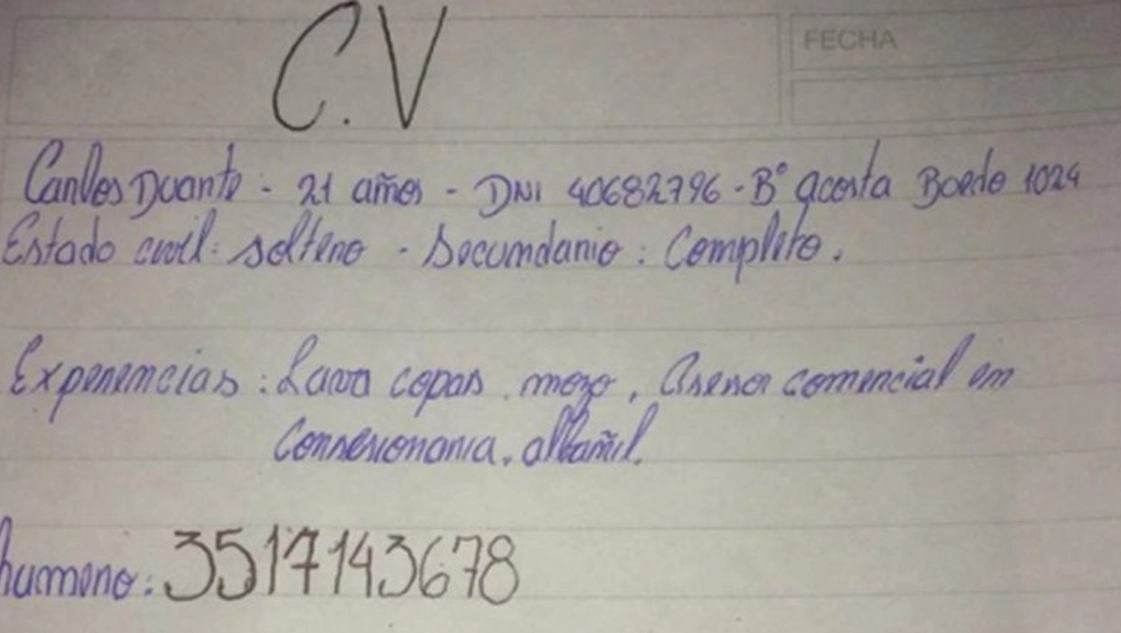 C.V
FECHA
Carlos Duarte - 21 años - DNI 40682796 - B° acosta Boedo 1024
Estado civil: soltero - Secundario : Completo.
Experiencias : Lava copas, mozo, Asesor comercial en
Consesionaria, albañil.
humero: 3517143678